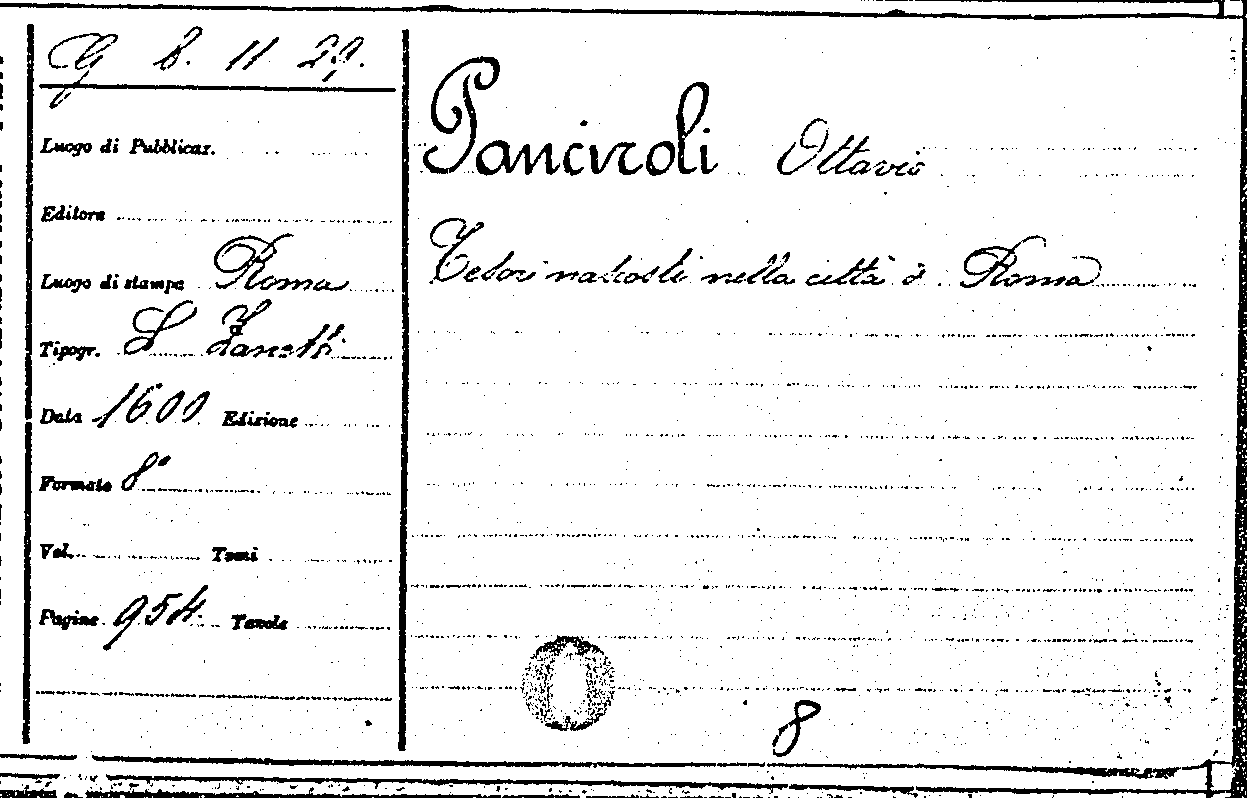 G 8. 11 29.
Luogo di Pubblicaz.
Editore
Luogo di stampa Roma
Tipogr. L Zanetti
Data 1600 Edizione
Formato 8°
Vol. Tomi
Pagine 954. Tavole
Panciroli Ottavio
Tesori nascosti nella città di Roma
8